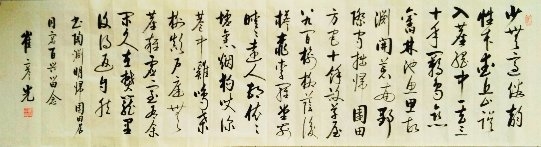 少無適俗韻
性本愛丘山誤
入塵網中一去三
十年羈鳥戀
舊林池魚思故
淵開荒南野
際守拙歸園田
方宅十餘畝草屋
八九間榆柳蔭後
檐桃李羅堂前
曖曖遠人村依依
墟里煙狗吠深
巷中雞鳴桑
樹顛戶庭無
塵雜虛室有餘
閒久在樊籠里
復得返自然
陶淵明歸園田居
留念
崔彥光